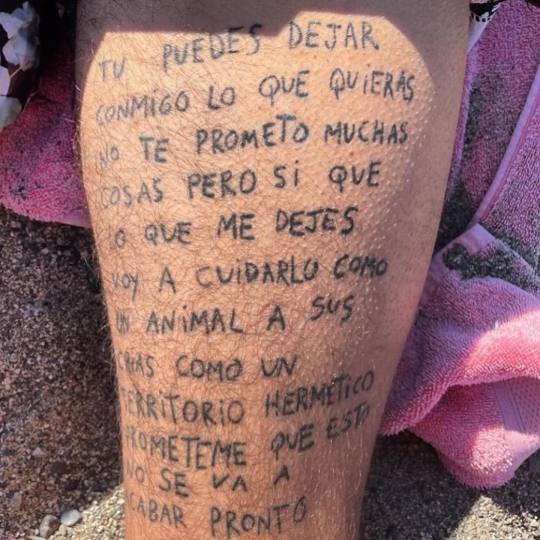 TU PUEDES DEJAR
CONMIGO LO QUE QUIERAS
NO TE PROMETO MUCHAS
COSAS PERO SI QUE
LO QUE ME DEJES
VOY A CUIDARLO COMO
UN ANIMAL A SUS
CRIAS COMO UN
TERRITORIO HERMETICO
PROMETEME QUE ESTO
NO SE VA A
ACABAR PRONTO